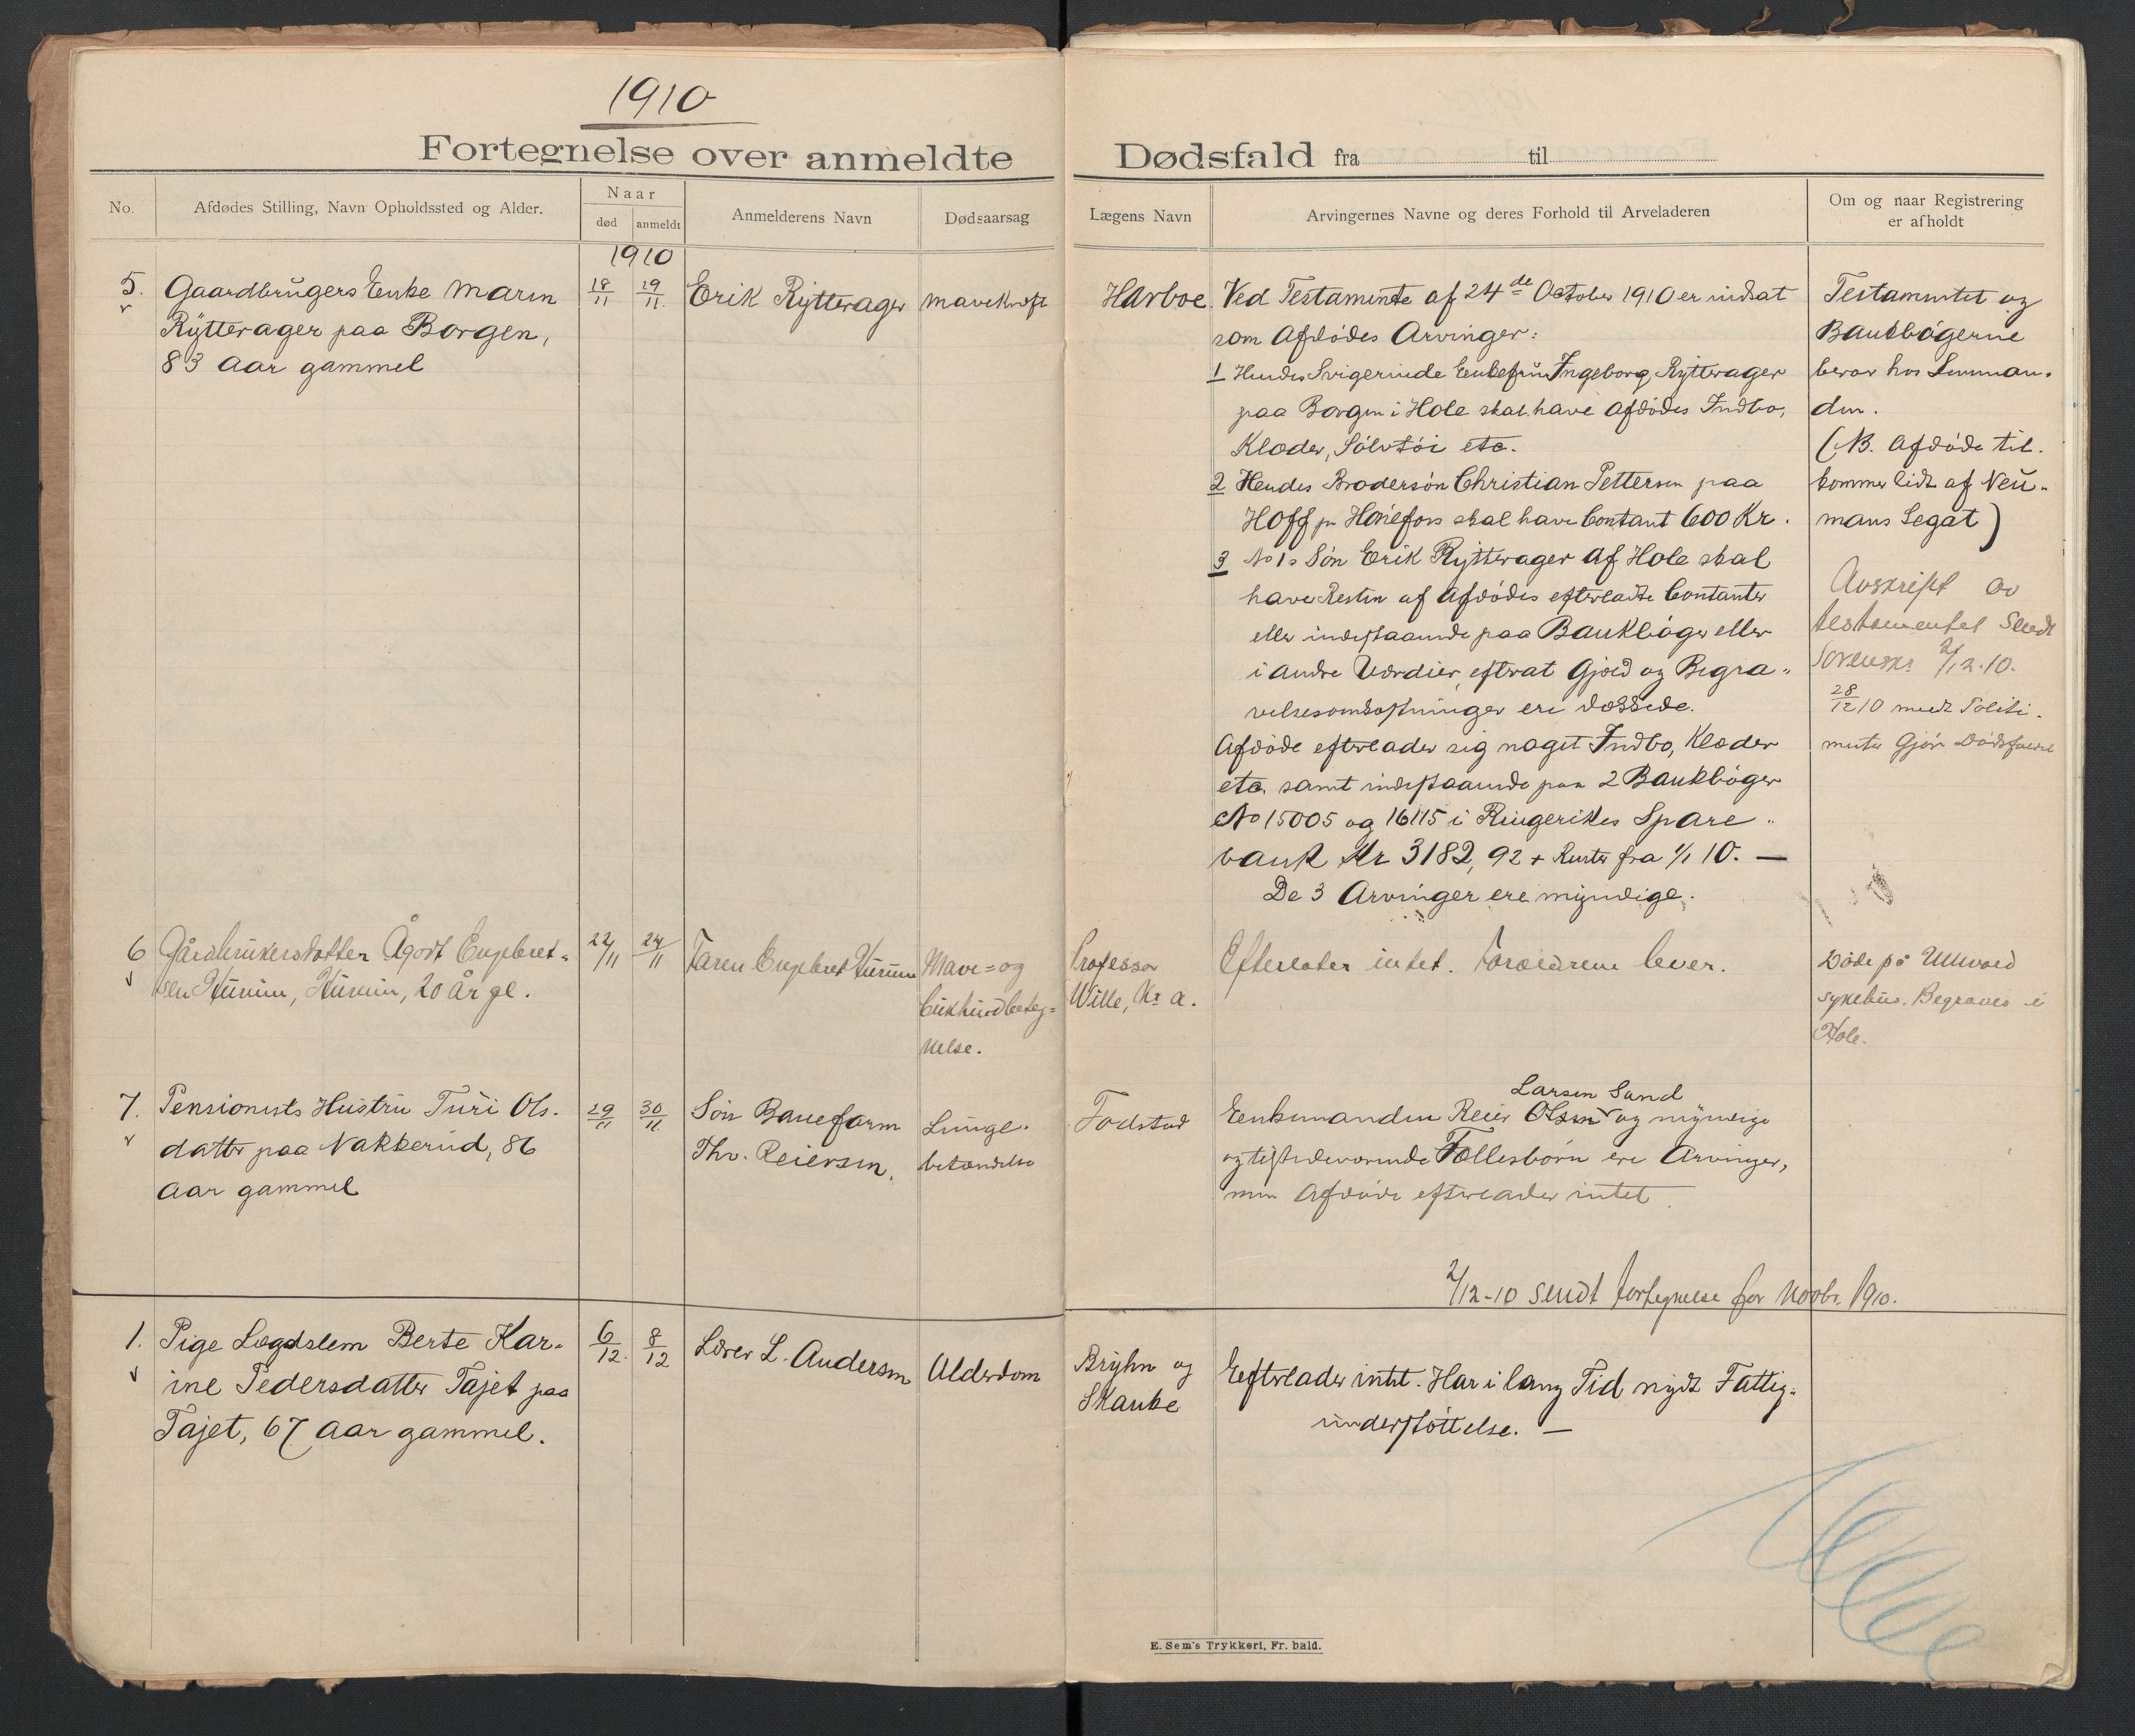 1910
Fortegnelse over anmeldte Dødsfald fra til
No.
Afdødes Stilling, Navn Opholdssted og Alder.
Naar
død
anmeldt
Anmelderens Navn
Dødsaarsag
Lægens Navn
Arvingernes Navne og deres Forhold til Arveladeren
Om og naar Registrering
er afholdt
1910
5.
Gaardbrugers Enke Maren
Rytterager paa Borgen,
83 Aar gammel
18/11
19/11
Erik Rytterager
Mavekræft
Harboe
Ved Testamente af 24de October 1910 er indsat
som Afdødes Arvinger:
1 Hendes Svigerinde Enkefru Ingeborg Rytterager
paa Borgen i Hole skal have Afdødes Indbo,
Klæder, Sølvtøi etc.
2 Hendes Brodersøn Christian Pettersen paa
Hoff pr Hønefoss skal have Contant 600 Kr.
3 No 1s Søn Erik Rytterager af Hole skal
have Resten af Afdødes efterladte Contanter
eller indestaaende paa Bankbøger eller
i andre Værdier, efterat Gjæld og Begra-
velsesomkostninger ere dækkede.
Afdøde efterlader sig noget Indbo, Klæder
etc. samt indestaaende paa 2 Bankbøger
No 15005 og 16115 i Ringerikes Spare-
bank Kr 3182,92 + Renter fra 1/1 10. —
De 3 Arvinger ere myndige.
Testamentet og
Bankbøgerne
beror hos Lensman-
den.
(NB. Afdøde til-
kommer lidt af Neu-
manns Legat)
Avskrift av
testamentet sendt
Sorenskr 2/12.10.
28/12 10 meldt Politi-
6
Gårdbrukersdatter Ågodt Engebret-
sen Hurum, Hurum, 20 år gl.
22/11
24/11
Faren Engebret Hurum
Mave= og
bukhindbeten=
nelse.
Professor
Wille, Kr.a.
Efterlater intet. Forældrene lever.
Døde på Ullevold
sykehus. Begraves i
Hole.
7.
Pensionists Hustru Turi Ols-
datter paa Nakkerud, 86
Aar gammel
29/11
30/11
Søn Baneform
Thv. Reiersen.
Lunge-
betændelse
Fodstad
Larsen Sund
Enkemanden Reier Olsen og myndige
og tilstedeværende Fællesbørn ere Arvinger,
men Afdøde efterlader intet
2/12-10 sendt fortegnelse for Novbr. 1910.
1.
Pige Lægdslem Berte Kar-
ine Pedersdatter Tajet paa
Tajet, 67 Aar gammel.
6/12.
8/12
Lærer L. Andersen
Alderdom
Bryhn og
Skaube
Efterlader intet. Har i lang Tid nydt Fattig-
understøttelse. —
E. Sem's Trykkeri, Fr. hald.